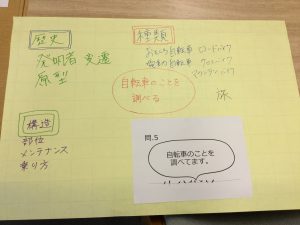 歴史
発明者 変遷
原型
種類
おもちゃ自転車 ロードバイク
電動自転車 クロスバイク
マウンテンバイク
旅
自転車のことを
調べる
構造
部位
メンテナンス
乗り方
問.5
自転車のことを
調べてます。